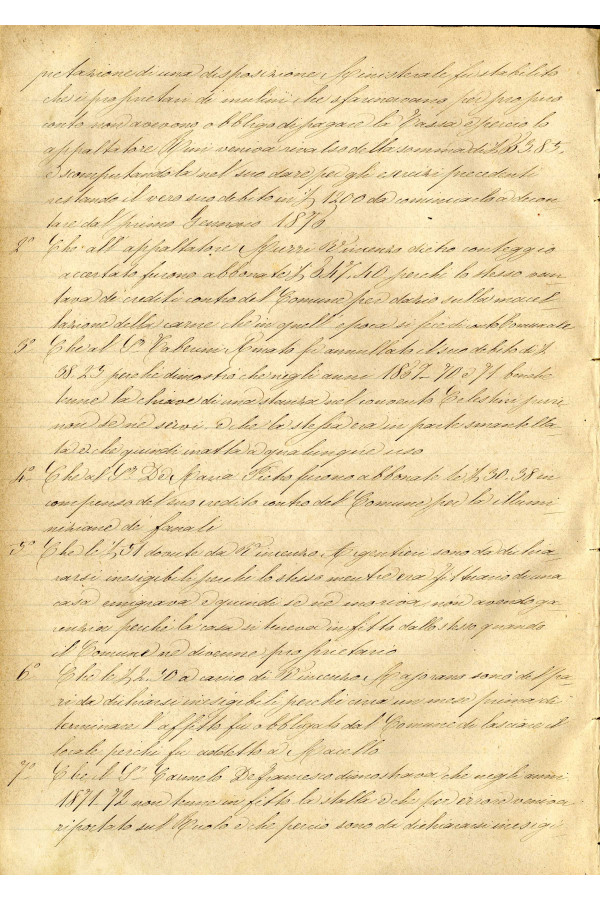 pretazione di una disposizione Ministeriale fu stabilito
che i proprietari di mulini che sfarinavano per proprio
conto non avevano obbligo di pagare la Tassa e perciò lo
appaltatore veniva rivalso della somma di L.
e scomputandola nel suo dare per gli esercizi precedenti
restando il vero suo debito in L. 1200 da cominciarlo a scon-
tare dal primo Gennaro 1876
2° Che all' appaltatore Muzzi Vincenzo dietro conteggio
accertato furono abbonate L. 647.40 perchè lo stesso van-
tava dei crediti contro del Comune per dazio sulla macel-
lazione della carne che in quell' epoca si fece di conto Comunale
3° Che al Sr. Amato fu annullato il suo debito di L.
58.23 perchè dimostrò che negli anni 1867-70 e 71 benchè
tenne la chiave di una stanza nel convento Celestini pure
non se ne servì e che la stessa era in parte smantella-
ta e che quindi inatta a qualunque uso
4° Che al Sr. De Maria furono abbonate le L. 30.38 in
compenso del suo credito contro del Comune per la illumi-
nazione dei fanali
5° Che le L. 51 dovute da Vincenzo Argentieri sono da dichia-
rarsi inesigibili perchè lo stesso mentre era fittuario di una
casa emigrava e quindi se ne moriva, non avendo ga-
ranzia perchè la casa si teneva in fitto dallo stesso quando
il Comune ne divenne proprietario
6° Che le L. 2.50 a carico di Vincenzo Majorano sono del pa-
ri da dichiarsi inesigibili perchè circa un mese prima di
terminare l' affitto fu obbligato dal Comune di lasciare il
locale perchè fu addetto a Macello
7° Che il Sr. Carmelo Defrancesco dimostrava che negli anni
1871-72 non tenne in fitto la stalla e che per errore veniva
riportato sul Ruolo e che perciò sono da dichiararsi inesigi-